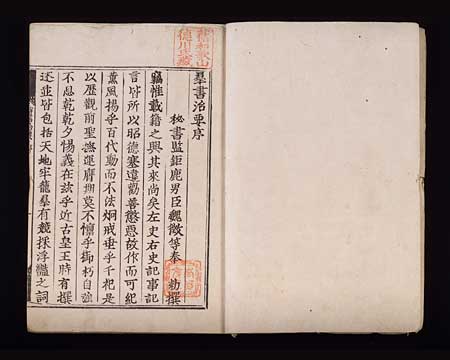 舊和歌山
德川氏藏
羣書治要序
秘書監鉅鹿男臣魏徵等奉 勑撰
竊惟載籍之興其來尚矣左史右史記事記
言皆所以昭德塞違勸善懲惡故作而可紀
薰風揚乎百代動而不法炯戒垂乎千祀是
以歷觀前聖撫運膺期莫不懍乎御朽自強
不息乾乾夕惕義在茲乎近古皇王時有撰
述並皆包括天地牢籠羣有競採浮豔之詞